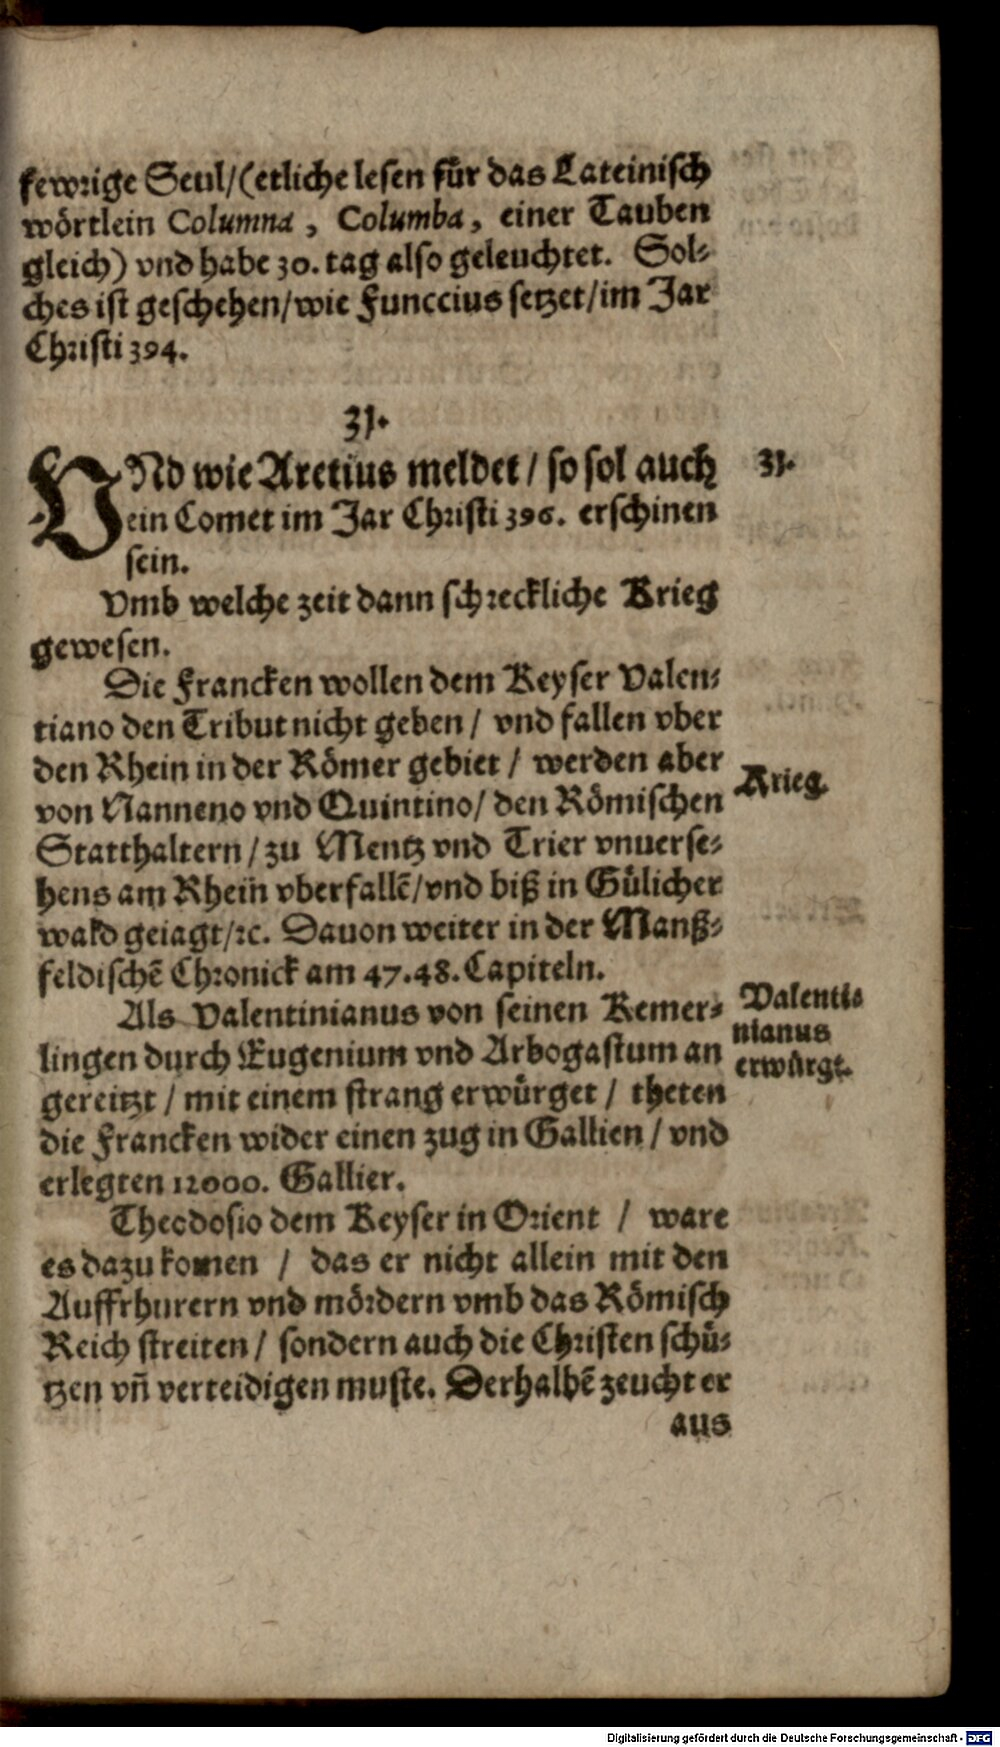 fewrige Seul/(etliche lesen für das Lateinisch
wörtlein Columna, Columba, einer Tauben
gleich) vnd habe 30. tag also geleuchtet. Sol-
ches ist geschehen/wie Funccius setzet/im Jar
Christi 394.
31.
VNd wie Aretius meldet/ so sol auch
31.
ein Comet im Jar Christi 396. erschinen
sein.
Vmb welche zeit dann schreckliche Krieg
gewesen.
Die Francken wollen dem Keyser Valen-
tiano den Tribut nicht geben/ vnd fallen vber
den Rhein in der Römer gebiet/ werden aber
Krieg.
von Nanneno vnd Quintino/ den Römischen
Statthaltern/ zu Mentz vnd Trier vnuerse-
hens am Rhein vberfallē/vnd biß in Gülicher
wald geiagt/ꝛc. Dauon weiter in der Manß-
feldischē Chronick am 47.48. Capiteln.
Als Valentinianus von seinen Kemer-
Valenti-
nianus
erwürgt.
lingen durch Eugenium vnd Arbogastum an
gereitzt/ mit einem strang erwürget/ theten
die Francken wider einen zug in Gallien/ vnd
erlegten 12000. Gallier.
Theodosio dem Keyser in Orient/ ware
es dazu komen/ das er nicht allein mit den
Auffrhurern vnd mördern vmb das Römisch
Reich streiten/ sondern auch die Christen schü-
tzen vñ verteidigen muste. Derhalbē zeucht er
aus
Digitalisierung gefördert durch die Deutsche Forschungsgemeinschaft - DFG